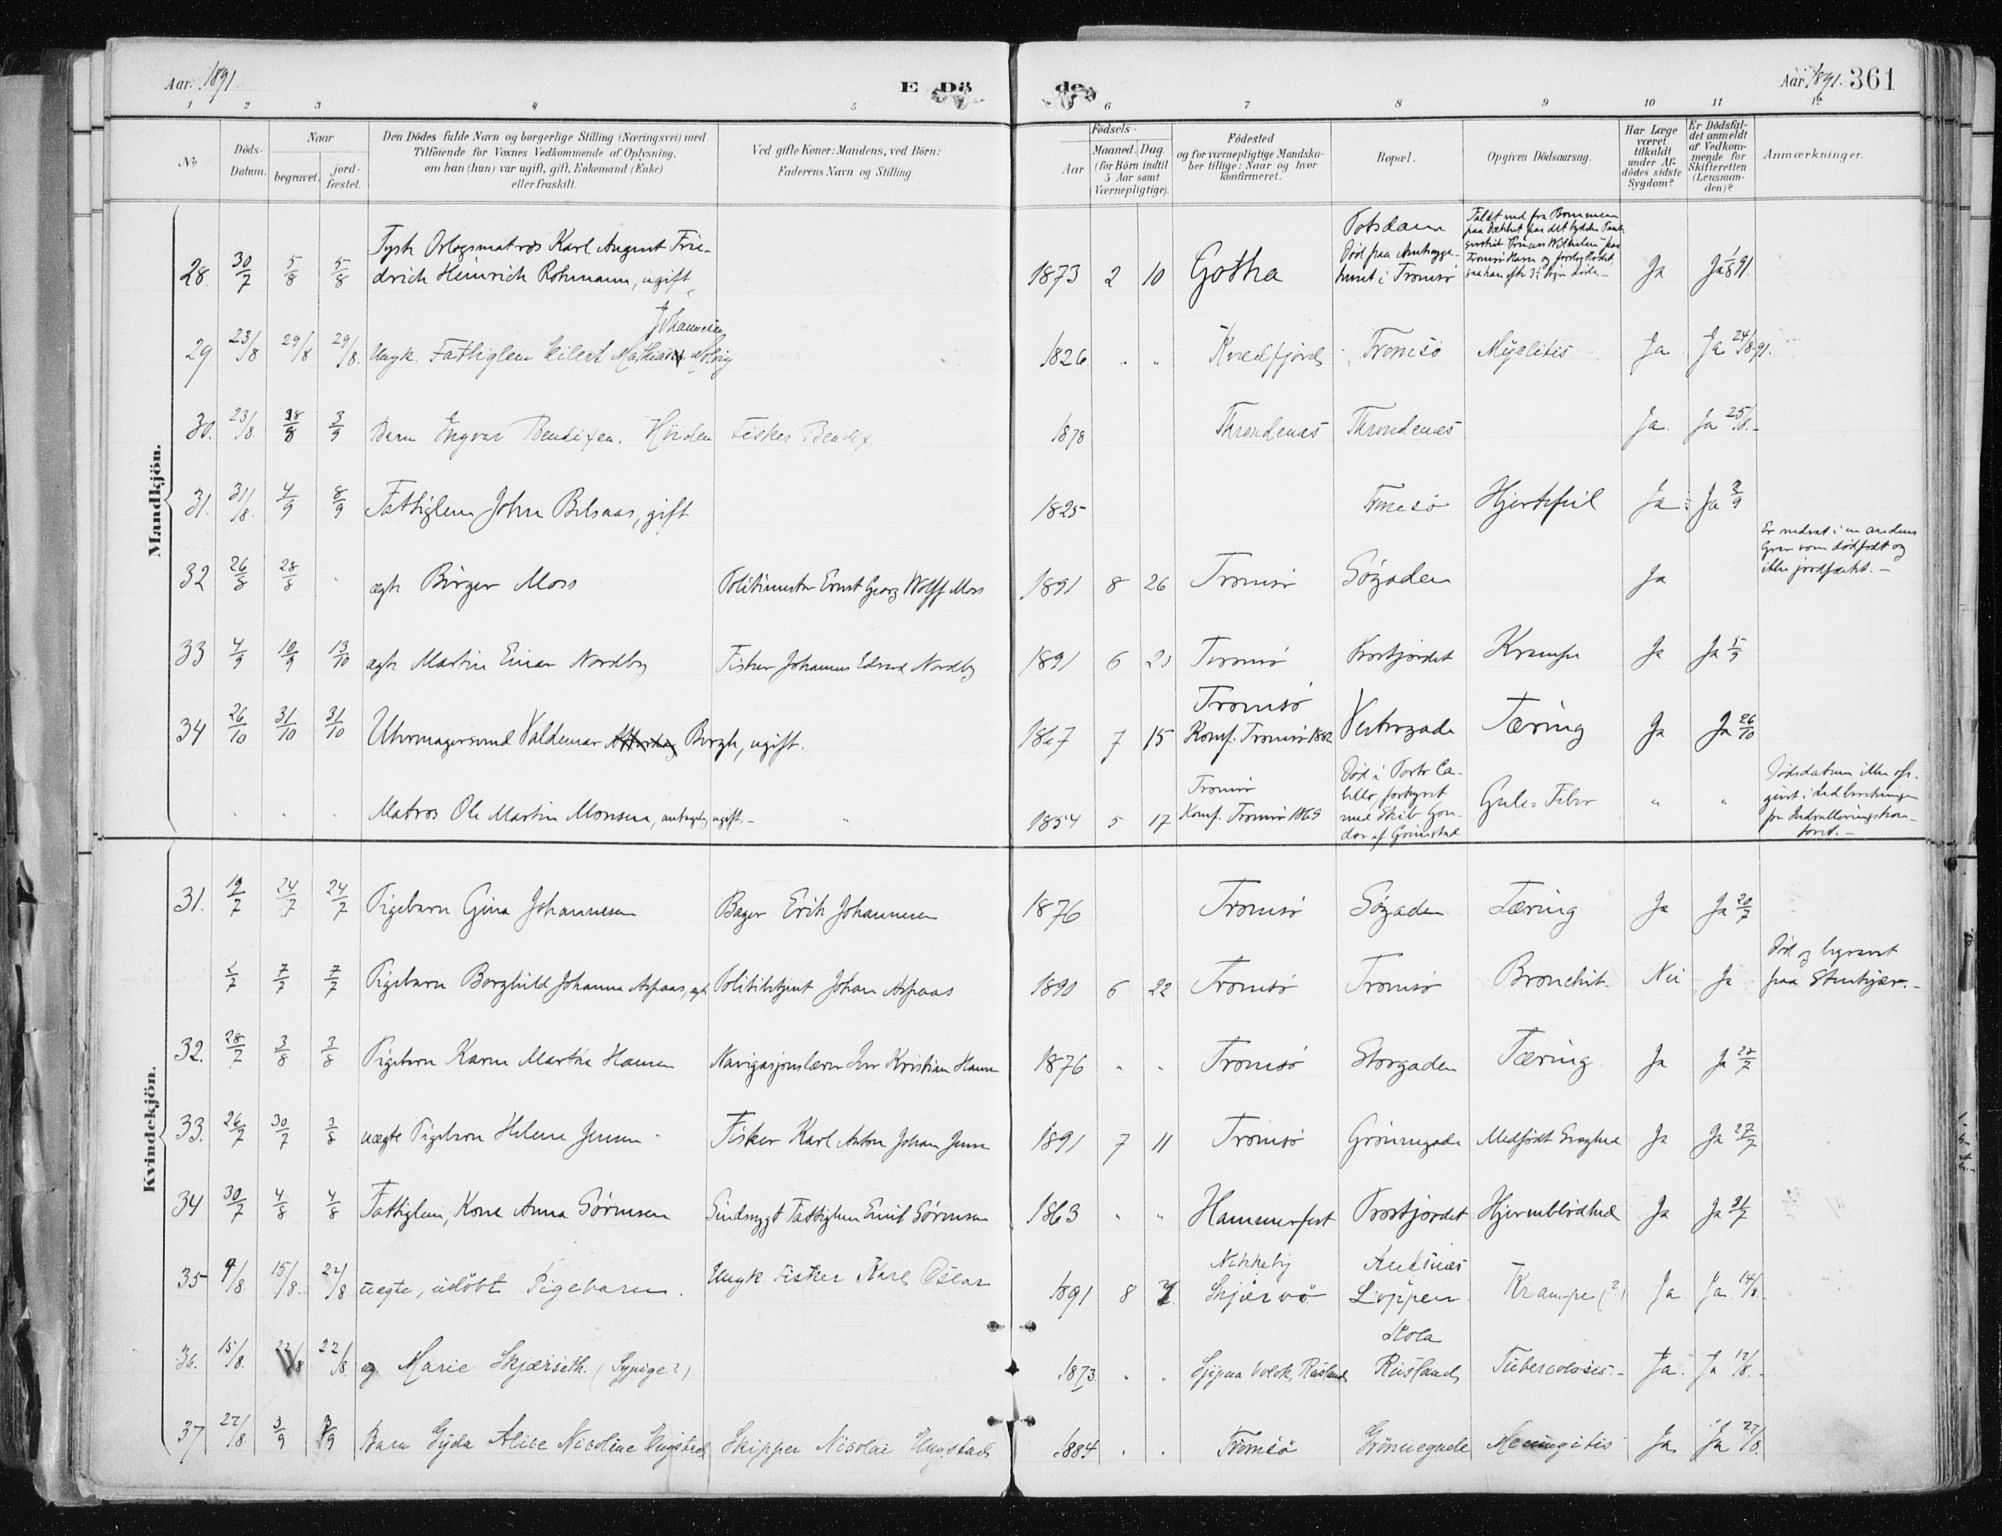 Aar. 1891.
E. Döde.
Aar 1891. 361
1 2 3 4 5 6 7 8 9 10 11 12
No
Döds-Datum.
Naar
begravet.
jord-fæstet.
Den Dödes fulde Navn og borgerlige Stilling (Næringsvei) med
Tilföiende for Voxnes Vedkommende af Oplysning,
om han (hun) var ugift, gift, Enkemand (Enke)
eller fraskilt.
Ved gifte Koner: Mandens, ved Börn:
Faderens Navn og Stilling
Födsels-
Aar
Maaned. Dag
(for Börn indtil
5 Aar samt
Værnepligtige).
Födested
og for værnepligtige Mandska-
ber tillige: Naar og hvor
konfirmeret.
Bopæl.
Opgiven Dödsaarsag.
Har Læge
været
tilkaldt
under Af-
dödes sidste
Sygdom?
Er Dödsfal-
det anmeldt
af Vedkom-
mende for
Skifteretten
(Lensman-
den)?
Anmærkninger.
Mandkjön.
28. 30/7 5/8 5/8 Tysk Orlogsmatros Karl August Frie-
drich Heinrich Rohmann, ugift 1873 2 10 Gotha Potsdam
Död paa Amtssyge-
huset i Tromsö Ja Ja 1/8 91.
29 23/8 29/8 29/8. Ungk. Fattiglem Eilert Johannesen 1826 . . Kvedfjord Tromsö Myelitis Ja Ja 24/8 91.
30. 23/8. 28/8 3/9 Barn Ingvar Bendixen. Fisker Bendix 1878 Throndenæs Throndenæs Ja. Ja 25/8.
31. 31/8. 4/9 8/9 Fattiglem John Belsaas, gift 1825 Tromsö Hjertefeil Ja Ja 2/9
32 26/8 28/8 . ægte Birger Moss Politimester Ernst Georg Wolff Moss 1891 8 26 Tromsö Sögaden Ja Er nedsat i en andens
Grav som dödfödt og
ikke jordfæstet.
33 4/9 10/9 13/10 ægte Martin Einar Nordby Fisker Johannes Edvard Nordby 1891 6 Tromsö Krampe Ja Ja 5/9
34 26/10 31/10 31/10 Uhrmagersvend Valdemar Bergh, ugift. 1867 7 15 Tromsö
Konf. Tromsö 1882 Vestregade Tæring Ja Ja 26/10
Matros Ole Martin Monsen, antagelig ugift. 1854 5 17 Tromsö
Konf. Tromsö 1869 Död i Porto Ca-
bello, forhyret
med Skib Con-
dor af Grimstad Gule-Feber " " Dödsdatum ikke op-
givet i Indberetningen
fra Indrulleringskon-
toret.
Kvindekjön.
31. 19/7 24/7 24/7 Pigebarn Gina Johannesen Bager Erik Johannesen 1876 Tromsö Sögaden Tæring Ja Ja 20/7
2/7 7/7 7/7 Pigebarn Borghild Johanna Aspaas, ægte Politibetjent Johan Aspaas 1890 6 22 Tromsö Tromsö Bronchit. Nei Ja Död og begravet
paa Stenkjær.
32. 28/7 3/8 3/8 Pigebarn Karen Martha Hansen Navigasjonslærer Kristian Hansen 1876 " " Tromsö Storgaden Tæring Ja Ja
33. 26/7 30/7 3/8 uægte Pigebarn Helene Jensen Fisker Karl Anton Johan Jensen 1891 7 11 Tromsö Grönnegade Medfödt Svaghed Ja Ja 27/7
34 30/7 4/8 4/8 Fattiglem, Kone Anna Sörensen Sindssygt Fattiglem Emil Sörensen 1863 " " Hammerfest Hjerneblödhed Ja Ja 31/7
35 9/8. 15/8. 22/8 uægte, udöbt Pigebarn. Ungk Fisker Karl Oscar 1891 8 7 Nikkeby
Skjærvö Andsnæs
Loppen Krampe (?) Ja. Ja. 14/8
36. 15/8. 22/8 22/8. ug Marie Skjærseth. (Sypige?) 1873. " " Volok, Rusland Kola
Rusland Tuberculosis. Ja. Ja
37 22/8. 3/9 3/9 Barn Gyda Alice Nicoline Ungstad Skipper Nicolai Ungstad 1884 . . Tromsö Grönnegade Meningitis Ja Ja